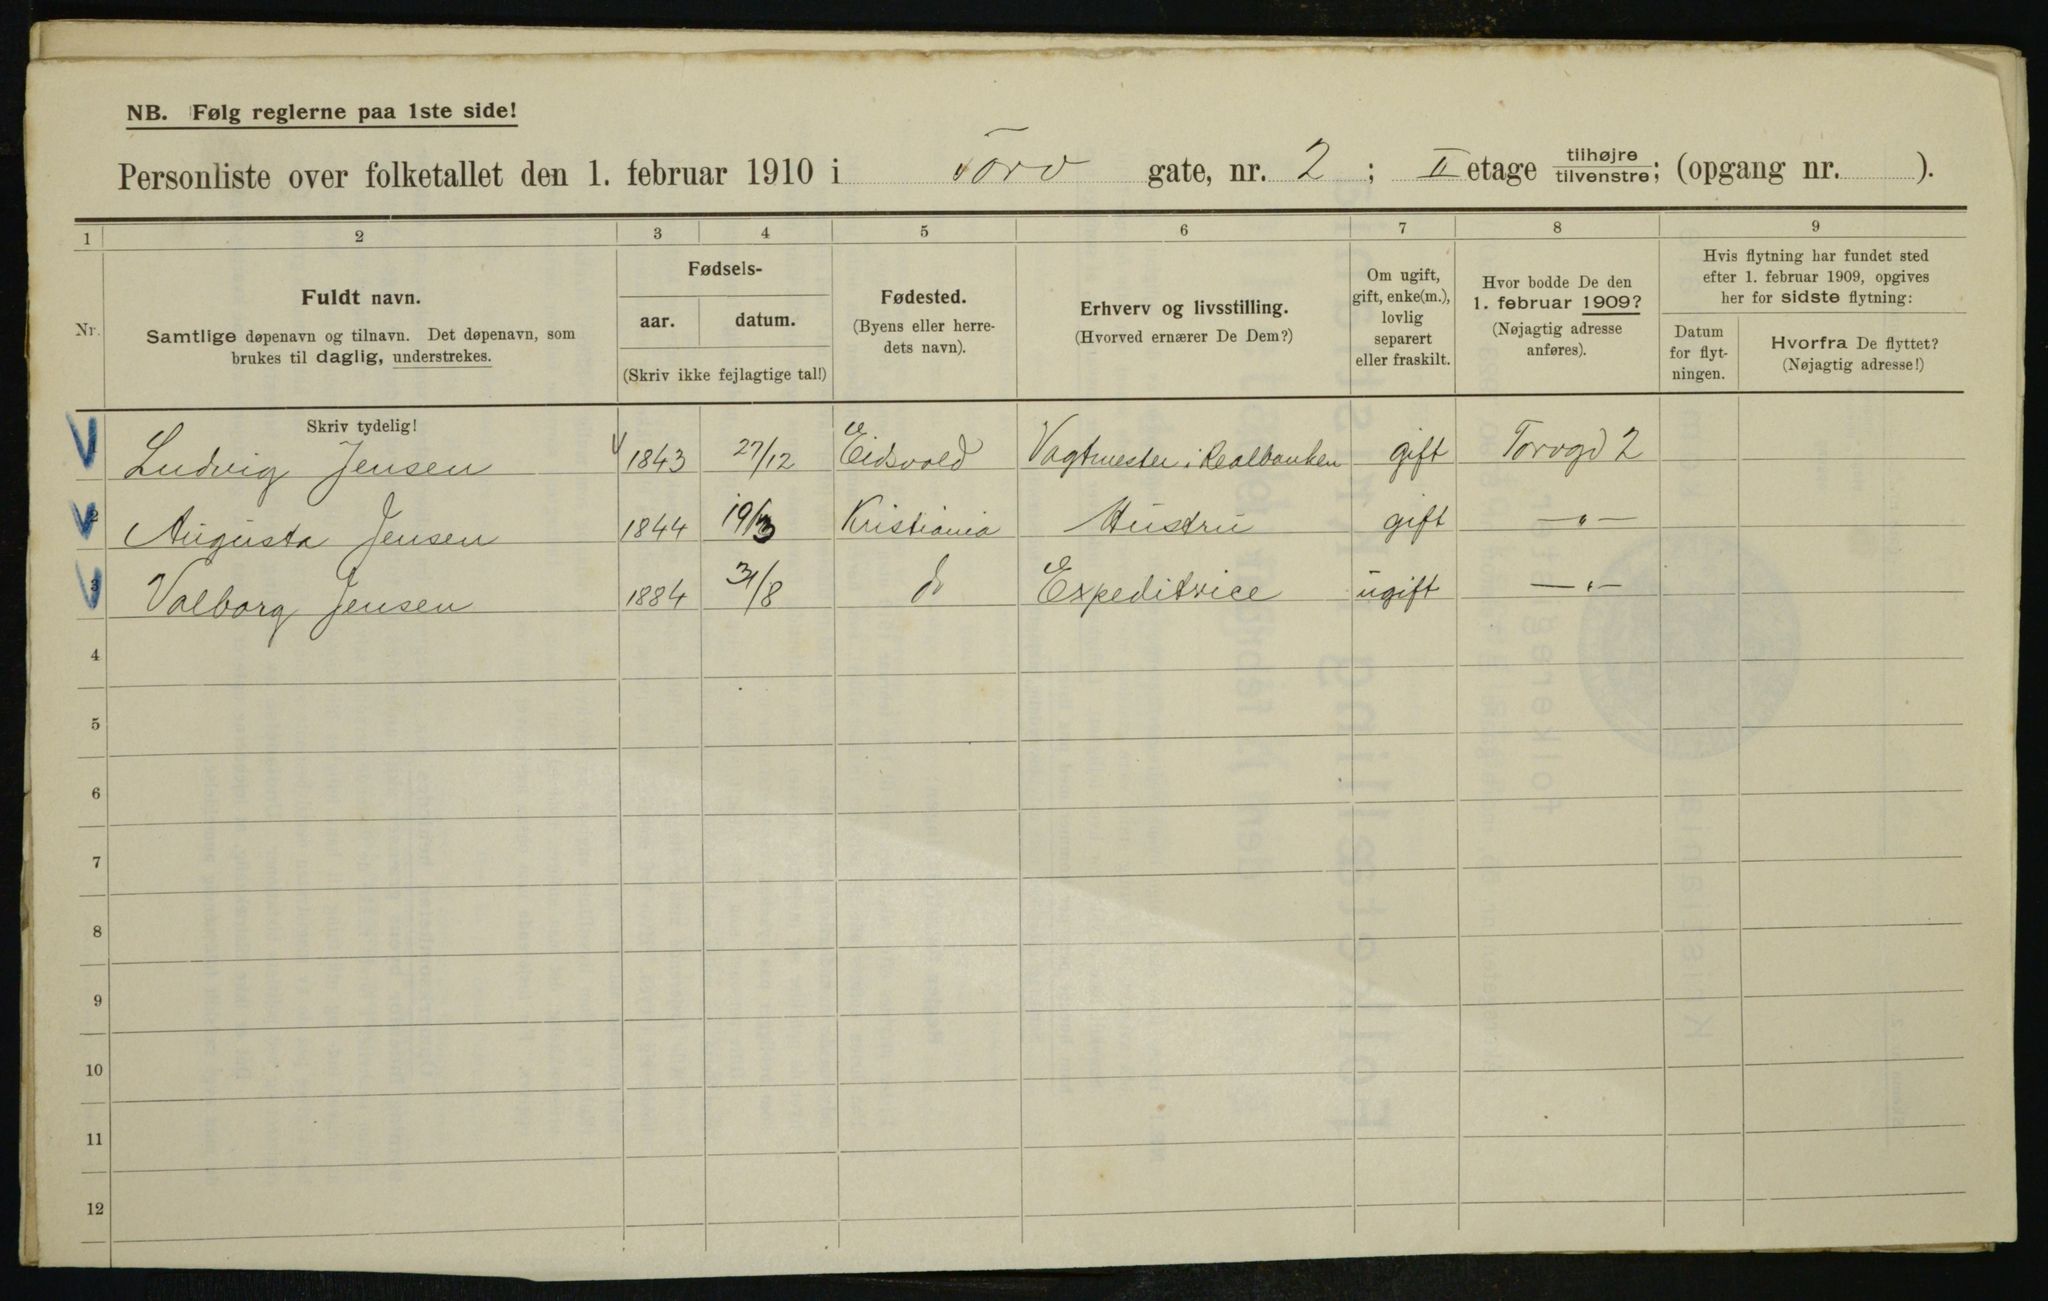 NB. Følg reglerne paa 1ste side!
Personliste over folketallet den 1. februar 1910 i Torv gate, nr. 2 ; II etage tilhøjre tilvenstre; (opgang nr. ).
1 2 3 4 5 6 7 8 9
Nr.
Fuldt navn.
Samtlige døpenavn og tilnavn. Det døpenavn, som
brukes til daglig, understrekes.
Fødsels-
aar. datum.
(Skriv ikke fejlagtige tal!)
Fødested.
(Byens eller herre-
dets navn).
Erhverv og livsstilling.
(Hvorved ernærer De Dem?)
Om ugift,
gift, enke(m.),
lovlig
separert
eller fraskilt.
Hvor bodde De den
1. februar 1909?
(Nøjagtig adresse
anføres).
Hvis flytning har fundet sted
efter 1. februar 1909, opgives
her for sidste flytning:
Datum
for flyt-
ningen.
Hvorfra De flyttet?
(Nøjagtig adresse!)
Skriv tydelig!
Ludvig Jensen 1843 27/12 Eidsvold Vagtmester i Realbanken gift Torvgd 2
2 Augusta Jensen 1844 19/3 Kristiania Hustru gift — " —
3 Valborg Jensen 1884 31/8 do Expeditrice ugift — " —
4
5
6
7
8
9
10
11
12